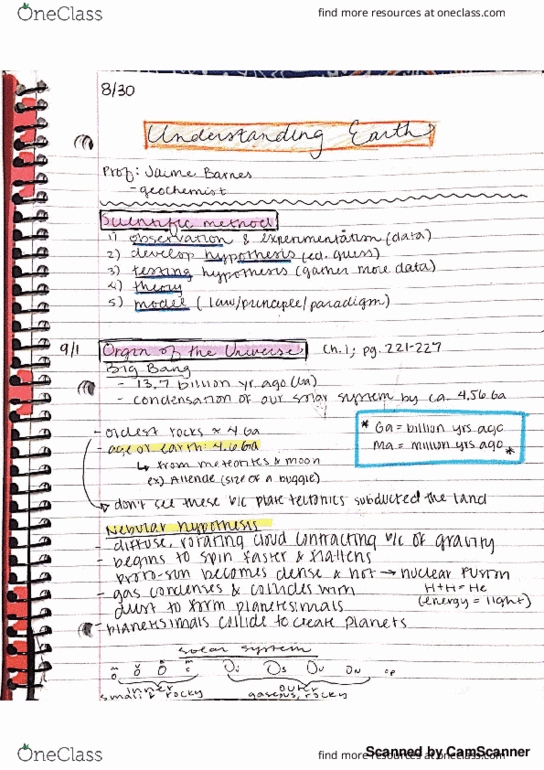 OneClass
find more resources at oneclass.com
8/30
Understanding Earth
Prof: Jaime Barnes
- geochemist
Scientific method
1) observation & experimentation (data)
2) develop hypothesis (ed. guess)
3) testing hypothesis (gather more data)
4) theory
5) model (law/principle/paradigm)
9/1 Orgin of the Universe Ch. 1; pg. 221-227
Big Bang
- 13.7 billion yr. ago (Ga)
- condensation of our solar system by ca. 4.56 Ga
- oldest rocks ≈ 4 Ga
- age of earth: 4.6 Ga
* Ga = billion yrs ago
Ma = million yrs ago *
↳ from meteorites & moon
ex) Allende (size of a buggie)
don't see these b/c plate tectonics subducted the land
Nebular hypothesis
- diffuse, rotating cloud contracting b/c of gravity
- begins to spin faster & flattens
proto-sun becomes dense & hot → nuclear fusion
H+H=He
(energy = light)
- gas condenses & collides with
dust to form planetsimals
- planetsimals collide to create planets
solar system
inner
small & rocky
outer
gaseous, rocky
OneClass
find more resources at oneclass.com
Scanned by CamScanner